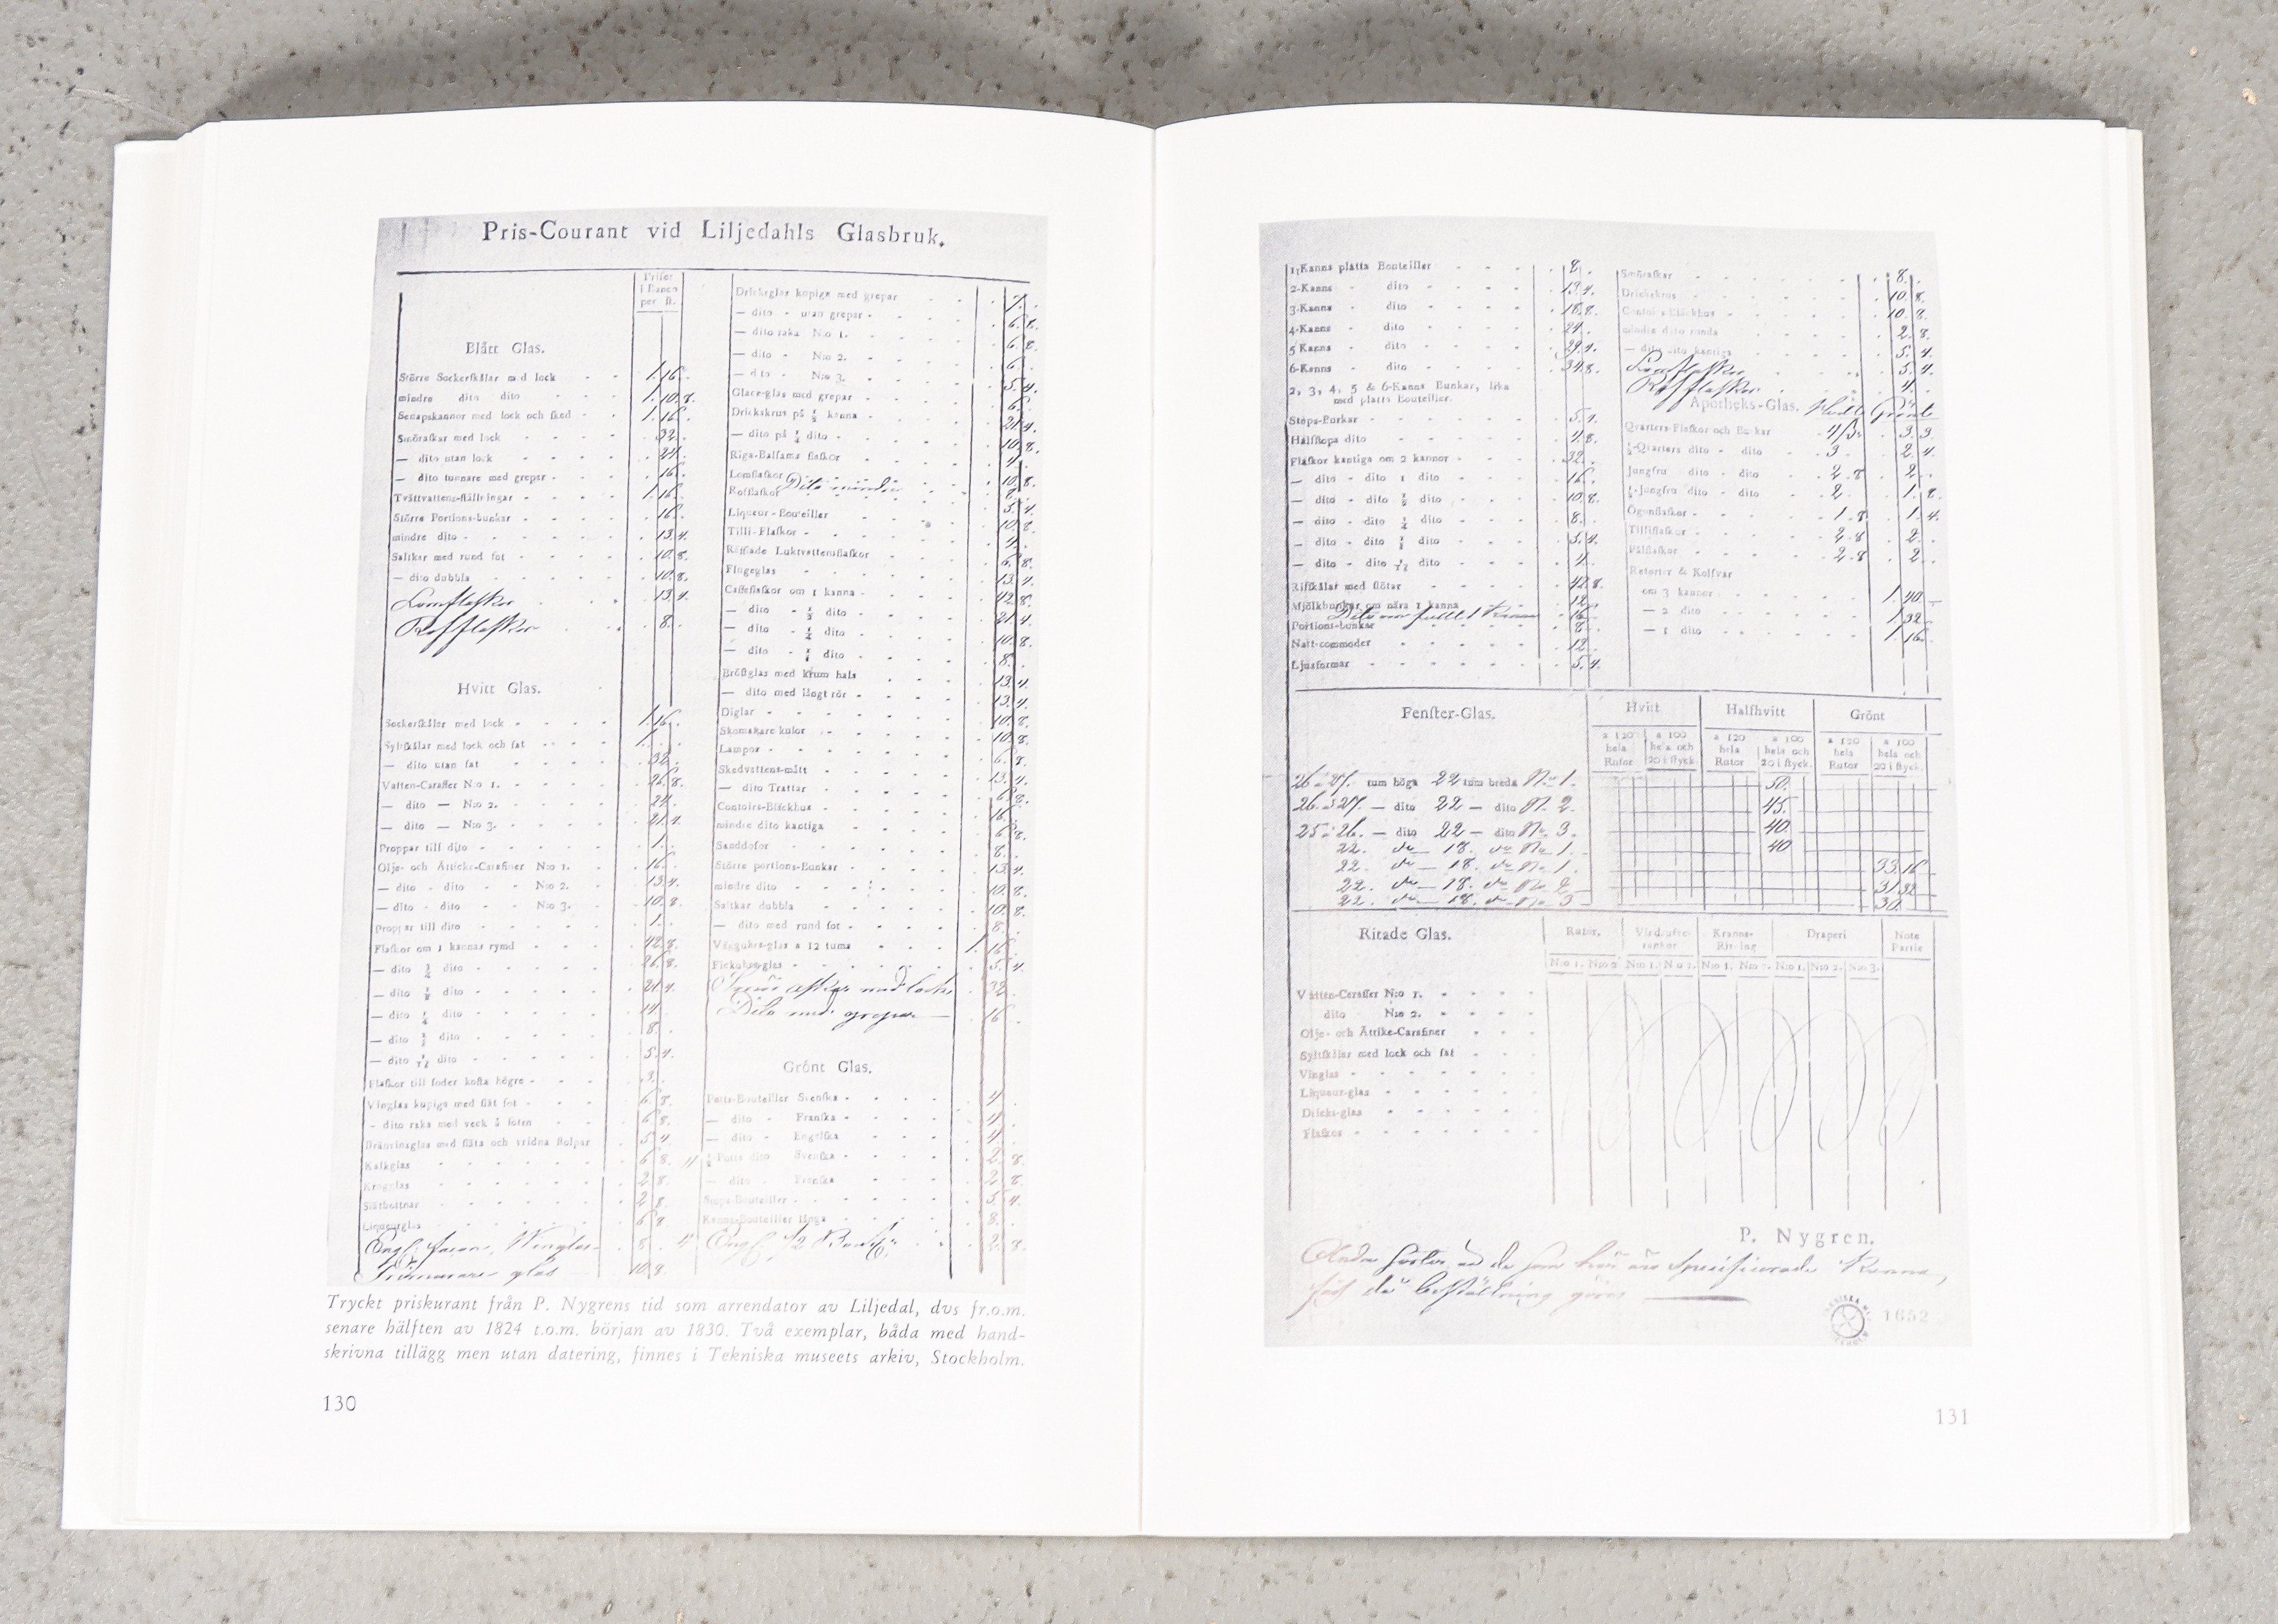 Pris-Courant vid Liljedahls Glasbruk.
Priser
i Banco
per st.
Blått Glas.
Större Sockerskålar med lock 1. 16.
mindre dito dito 1. 10. 8.
Senapskannor med lock och sked 1. 16.
Smöraskar med lock 32.
— dito utan lock 24.
— dito tunnare med grepar 16.
Tvättvattens-ställningar 1. 16.
Större Portions-bunkar 16.
mindre dito 13. 4.
Saltkar med rund fot 10. 8.
— dito dubbla 10. 8.
Lomflaskor 13. 4.
Rofflaskor 8.
Hvitt Glas.
Sockerskålar med lock 1. 16.
Syltskålar med lock och fat 1.
— dito utan fat 32.
Vatten-Caraffer N:o 1. 26. 8.
— dito — N:o 2. 24.
— dito — N:o 3. 21. 4.
Proppar till dito 1.
Olje- och Ätticke-Carafiner N:o 1. 16.
— dito - dito - N:o 2. 13. 4.
— dito - dito N:o 3. 10. 8.
Proppar till dito 1.
Flaskor om 1 kannas rymd 42. 8.
— dito dito 26. 8.
— dito dito 21. 4.
— dito 1/4 dito 14.
— dito dito 8.
— dito dito 5. 4.
Flaskor till foder kosta högre 3.
Vinglas kupiga med slät fot 6. 8.
- dito raka med veck å foten 6. 8.
Bränvinsglas med släta och vridna stolpar 5. 4.
Kalkglas 6. 8.
Kragglas 2. 8.
Slätbottnar 2. 8.
Liqueurglas 6. 8.
Engl. 8.
glas 10. 8.
Dricksglas kupiga med grepar 7.
— dito - utan grepar 6. 8.
— dito raka N:o 1. 6. 8.
— dito - N:o 2. 6.
— dito - N:o 3. 5. 4.
Glace-glas med grepar 6.
Drickskrus på 1/2 kanna 21. 4.
— dito på 1/4 dito 10. 8.
Riga-Balsams flaskor 4.
Lomflaskor 10. 8.
Rofflaskor Dito mindre 8.
Liqueur-Bouteiller 5. 4.
Tilli-Flaskor 10. 8.
Räfflade Luktvattensflaskor 4.
Flugeglas 13. 4.
Caffeflaskor om 1 kanna 42. 8.
— dito - 1/2 dito 21. 4.
— dito - 1/4 dito 10. 8.
— dito - dito 8.
Bröstglas med krum hals 13. 4.
— dito med långt rör 13. 4.
Diglar 10. 8.
Skomakare kulor 10. 8.
Lampor 6. 8.
Skedvattens-mått 13. 4.
— dito Trattar 6. 8.
Contoirs-Bläckhus 16.
mindre dito kantiga 6. 8.
Sanddosor 8.
Större portions-Bunkar 13. 4.
mindre dito 10. 8.
Saltkar dubbla 10. 8.
— dito med rund fot 8.
Vägguhrs-glas a 12 tums 1. 16.
Fickuhrs-glas 5. 4.
Smör askar med lock 32.
Dito med grepar — 16.
Grönt Glas.
Potts-Bouteiller Svenska 4.
— dito - Franska 4.
— dito - Engelska 4.
1/2-Potts dito Svenska 2. 8.
— dito - Franska 2. 8.
Stops-Bouteiller 5. 4.
Kanns-Bouteiller långa 8.
Engl. 1/2 2. 8.
Tryckt priskurant från P. Nygrens tid som arrendator av Liljedal, dvs fr.o.m.
senare hälften av 1824 t.o.m. början av 1830. Två exemplar, båda med hand-
skrivna tillägg men utan datering, finnes i Tekniska museets arkiv, Stockholm.
130
Kanna platta Bouteiller 8.
2-Kanns - dito 13. 4.
3-Kanns - dito 18. 8.
4-Kanns dito 24.
5 Kanns - dito 29. 4.
6-Kanns - dito 34. 8.
2, 3, 4, 5 & 6-Kanns Bunkar, lika
med platta Bouteiller.
Stops-Burkar 5. 4.
Halfstops dito 4. 8.
Flaskor kantiga om 2 kannor 32.
— dito - dito 1 dito 16.
— dito - dito 1/2 dito 10. 8.
— dito - dito 1/4 dito 8.
— dito - dito dito 5. 4.
— dito - dito dito 4.
Risskålar med flötar 42. 8.
Mjölkbunkar om nära 1 kanna 12.
Dito om fullt 1 Kanna 16.
Portions-bunkar 8.
Natt-commoder 12.
Ljusformar 5. 4.
Smöraskar 8.
Dricksktus 10. 8.
Contoirs-Bläckhus 10. 8.
mindre dito runda 2. 8.
— dito dito kantiga 5. 4.
Lomflaskor 5. 4.
Rofflaskor 4.
Apotheks-Glas. Hvitt Grönt
Qvarters-Flaskor och Burkar 3. 3.
1/2-Qvarters dito - dito 3 2. 4.
Jungfru dito - dito 2. 8 2.
1/2-Jungfru dito - dito 2. 1. 8.
Ögonflaskor 1. 8. 1. 4.
Tilliflaskor 2. 8 2.
Pälsflaskor 2. 8 2.
Retorter & Kolfvar
om 3 kannor 1. 40
— 2 dito 1. 32
— 1 dito 1. 16.
Fenster-Glas.
Hvitt Halfhvitt Grönt
a 120 hela Rutor a 100 hela och 20 i styck.
a 120 hela Rutor a 100 hela och 20 i styck.
a 120 hela Rutor a 100 hela och 20 i styck.
26 à 27. tum höga 22 tum breda No 1. 50.
26 à 27. — dito 22 — dito No 2. 45.
25 à 26. — dito 22 — dito No 3. 40.
22. do — 18. do No 1. 40
22. do — 18. do No 1. 33. 16
22. do — 18. do No 2 31. 32
22. do — 18. do No 3 30.
Ritade Glas.
Rutor. Vindrufs-rankor Kranns-Ritning Draperi Note Partie
N:o 1. N:o 2 N:o 1. N:o 2. N:o 1. N:o 2. N:o 1. N:o 2. N:o 3.
Vatten-Caraffer N:o 1.
dito N:o 2.
Olje- och Ättike-Carafiner
Syltskålar med lock och fat
Vinglas
Liqueur-glas
Dricks-glas
Flaskor
P. Nygren.
Andra Sorter än de som här äro Specificerade Kunna,
då beställning göres
1652
131